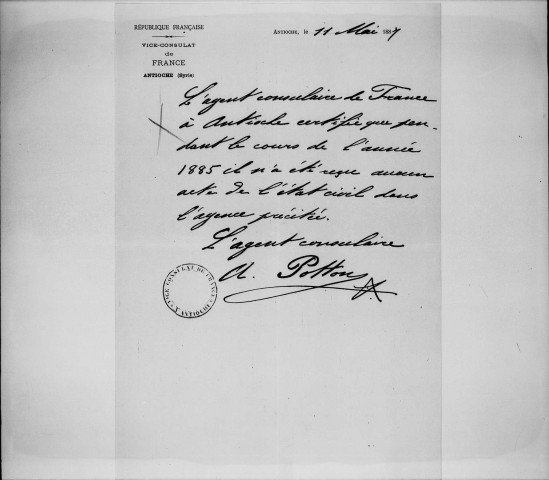 RÉPUBLIQUE FRANÇAISE
VICE-CONSULAT
de
FRANCE
ANTIOCHE (Syrie)
ANTIOCHE, le 11 Mai 1887
L'agent consulaire de France
à Antioche certifie que pen-
dant le cours de l'année
1885 il n'a été reçu aucun
acte de l'état civil dans
l'agence précitée.
L'agent consulaire
A. Potton
VICE CONSULAT DE FRANCE
À ANTIOCHE